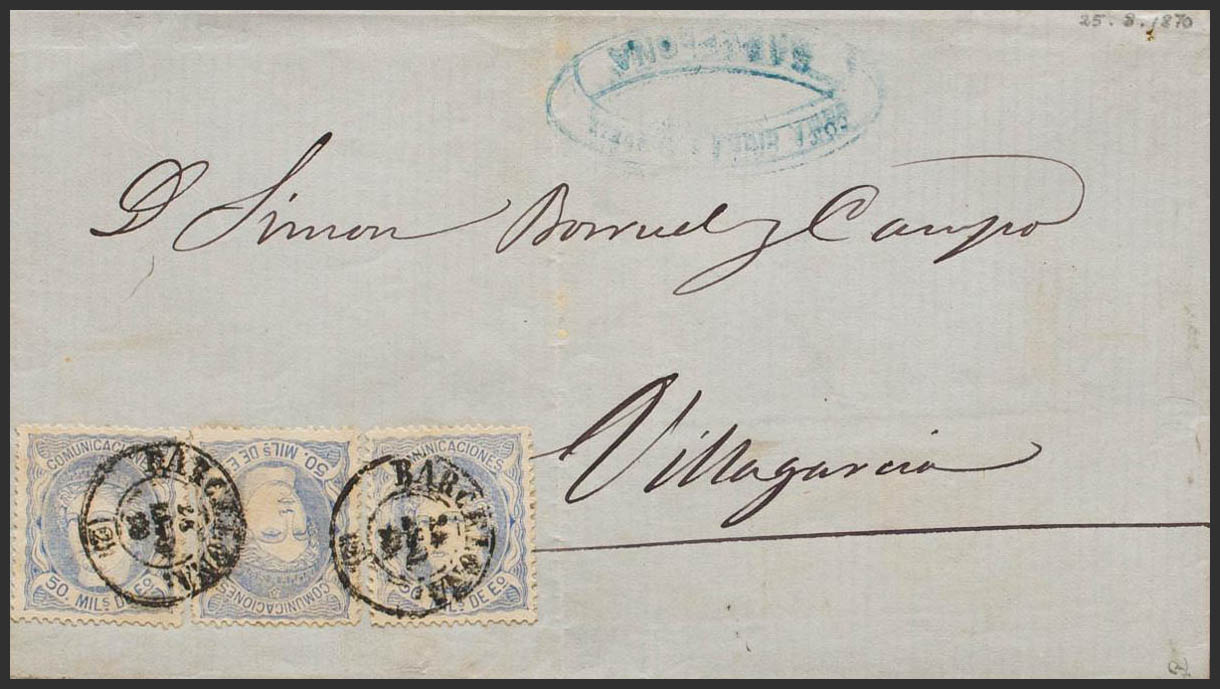 25. 8. 1870
BARCELONA
D Simon Borruel y Campo
Villagarcia
COMUNICACIONES
50. MILS DE EO
50. MILS DE EO
COMUNICACIONES
COMUNICACIONES
50. MILS DE EO
BARCELONA
25
BARCELONA